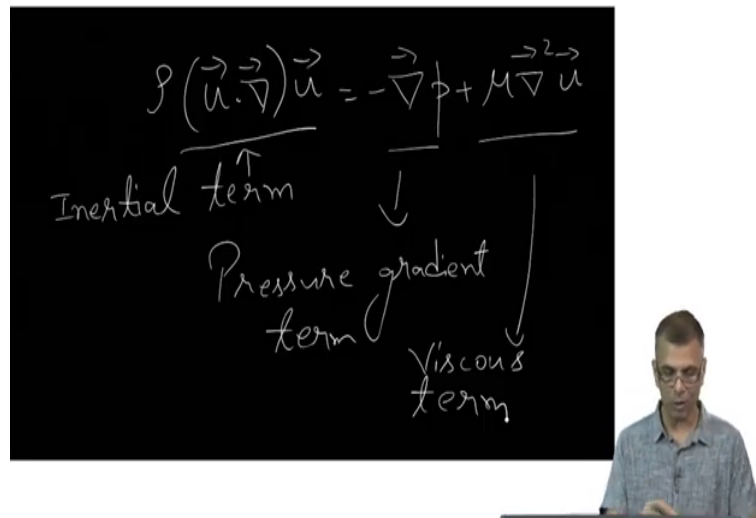 ρ(u⃗.∇⃗)u⃗ = -∇⃗p + μ∇⃗²u⃗
Inertial term
Pressure gradient
term
Viscous
term